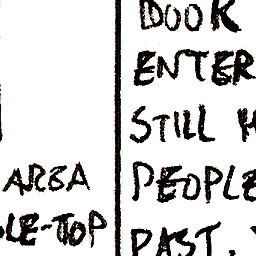 AREA
LE-TOP
DOOR
ENTER
STILL
PEOPLE
PAST.